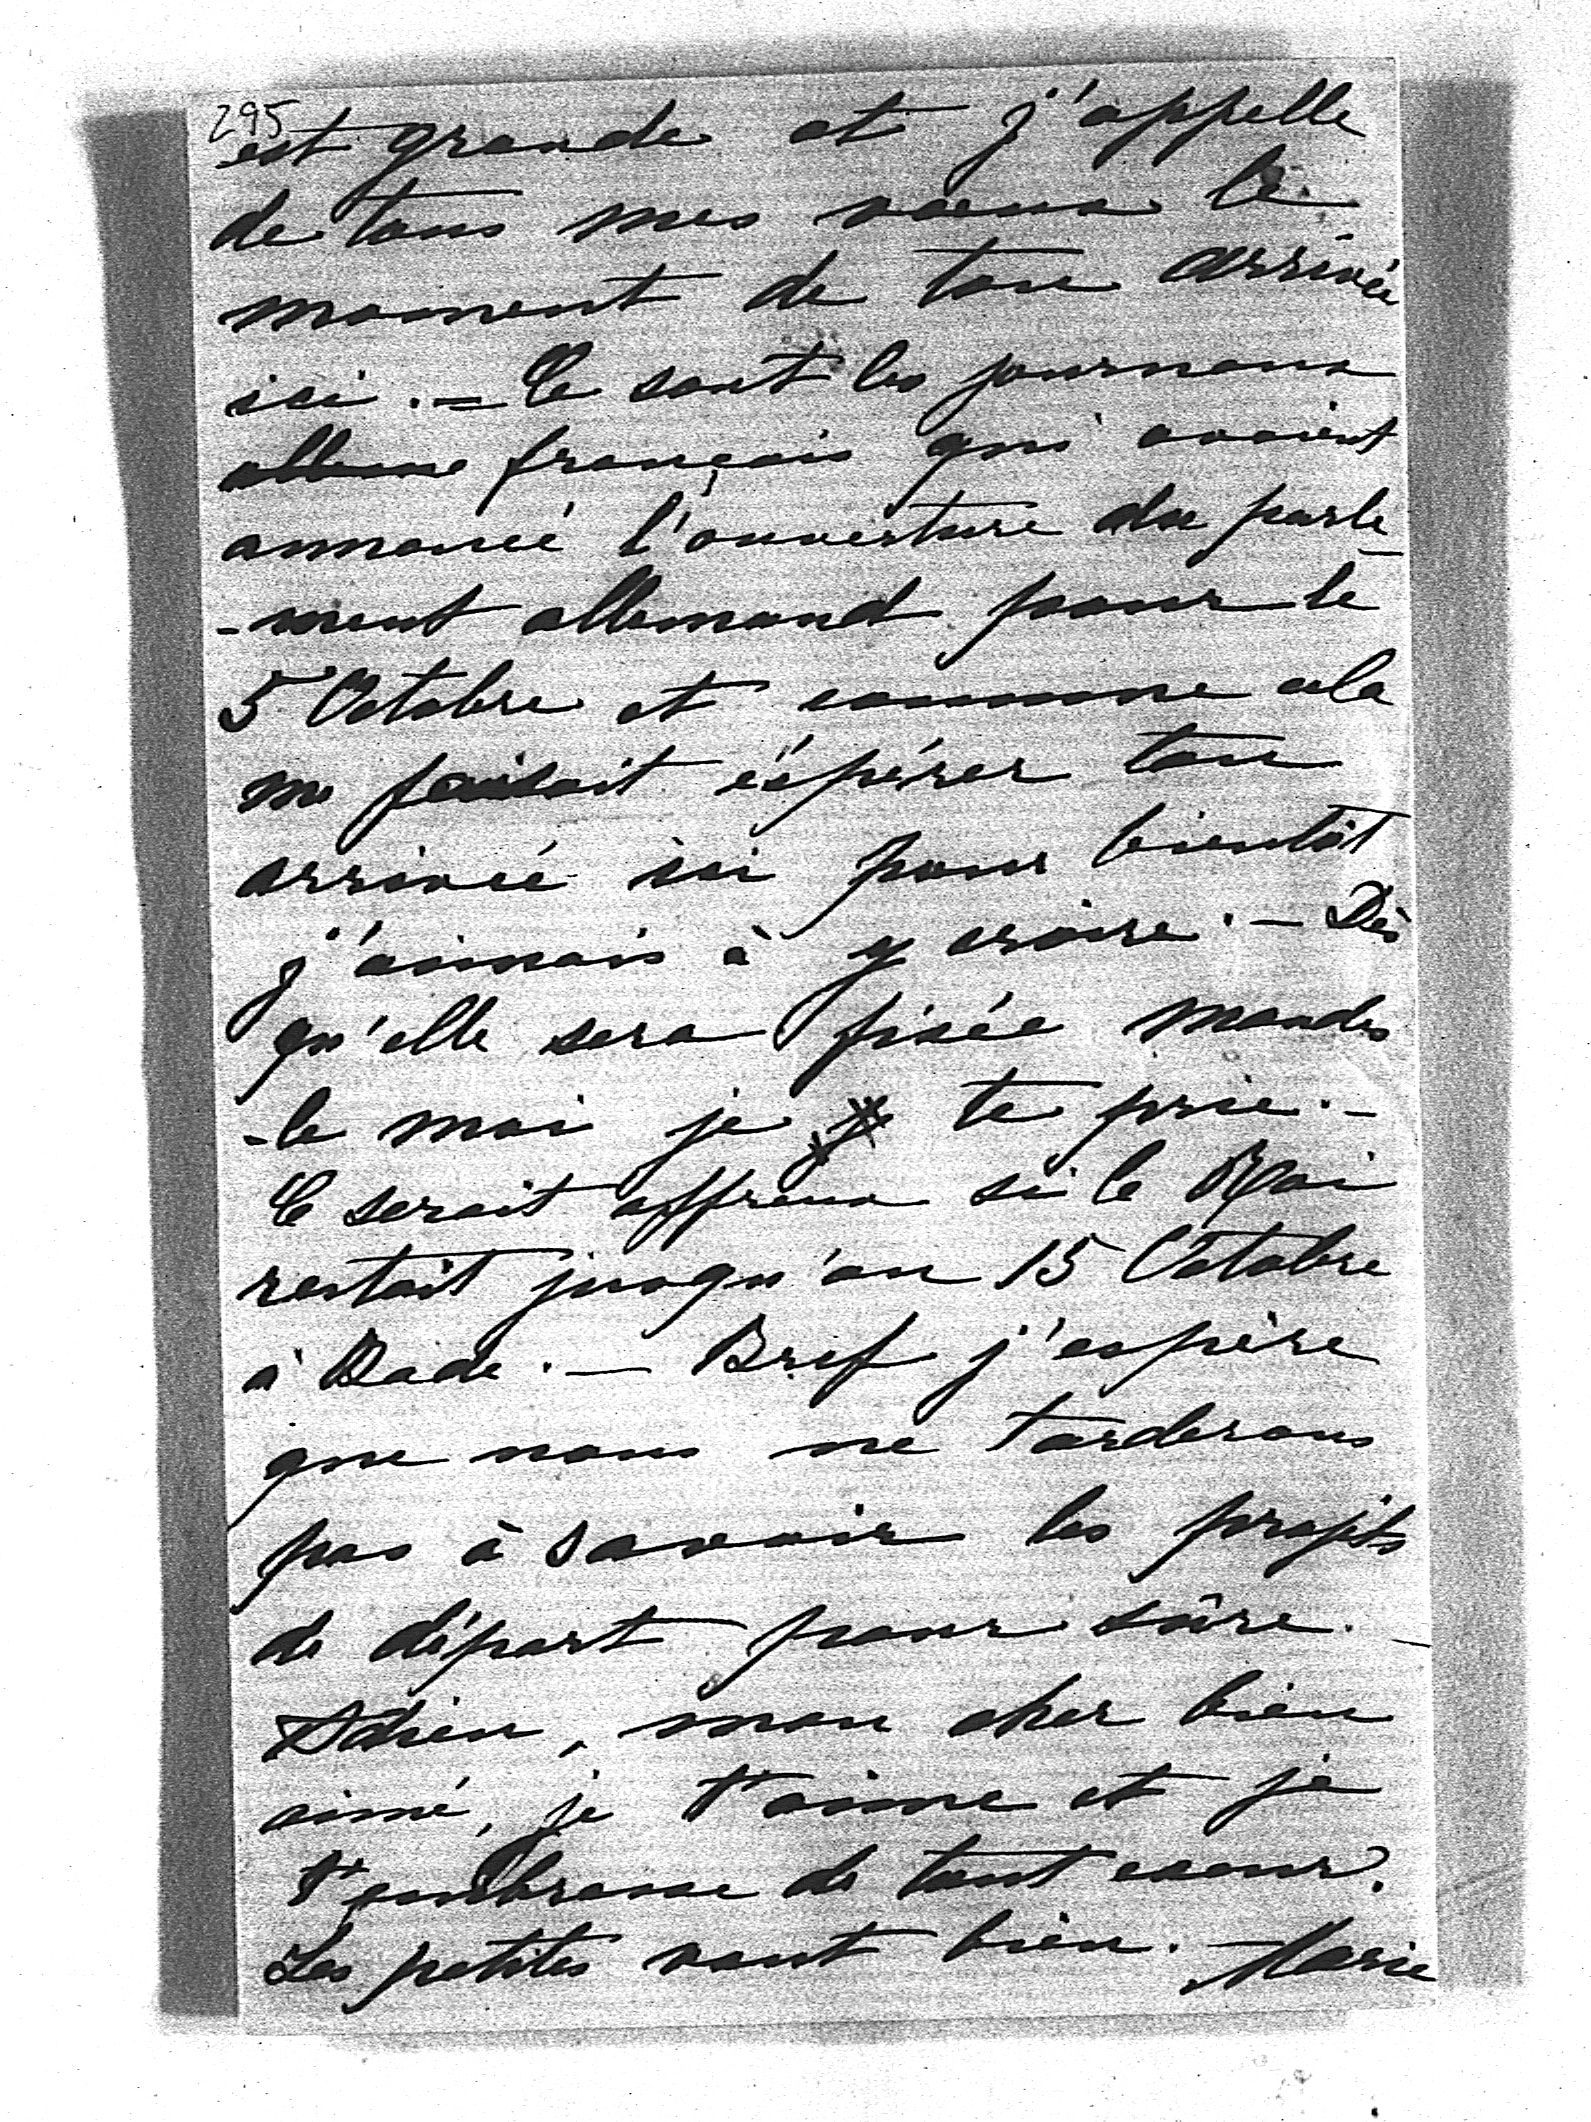 295
est grande et j'appelle
de tous mes voeux le
moment de ton arrivée
ici. — Ce sont les journaux
français qui avaient
annoncé l'ouverture du parle-
-ment allemand pour le
5 Octobre et comme cela
me faisait éspérer ton
arrivée ici pour bientôt
j'aimais à y croire. — Dès
qu'elle sera fixée mandes
-le moi je te prie. —
Ce serait affreux si le Roi
restait jusqu'au 15 Octobre
à Bade. — Bref j'espère
que nous ne tarderons
pas à savoir les projets
de départ pour sûre. —
Adieu, mon cher bien
aimé, je t'aime et je
t'embrasse de tout coeur.
Les petites vont bien. Marie